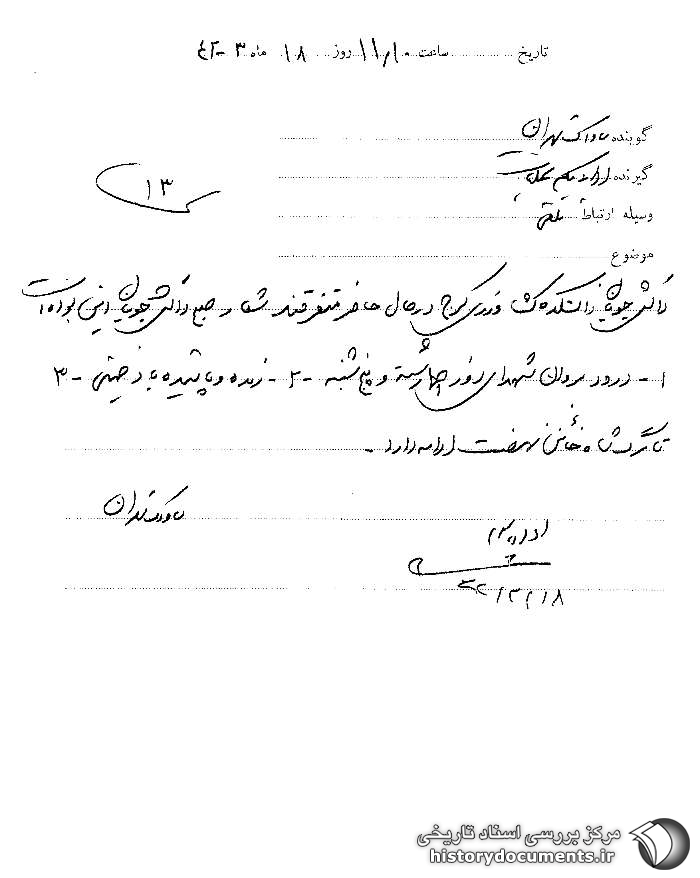 تاریخ ساعت ۱۱/۱۰ روز ۱۸ ماه ۳-۴۲
گوینده ساواک تهران
گیرنده اداره یکم
۱۳
وسیله ارتباط تلفن
موضوع
دانشجویان دانشکده کشاورزی کرج در حال حاضر متفرقند شعار صبح دانشجویان این بوده است
۱- درود بروان شهدای روز چهارشنبه و پنجشنبه -۲- زنده و پاینده باد خمینی -۳
تا مرگ شاه خائن نهضت ادامه دارد.
ساواک تهران
۴۲/۳/۱۸
مرکز بررسی اسناد تاریخی
historydocuments.ir